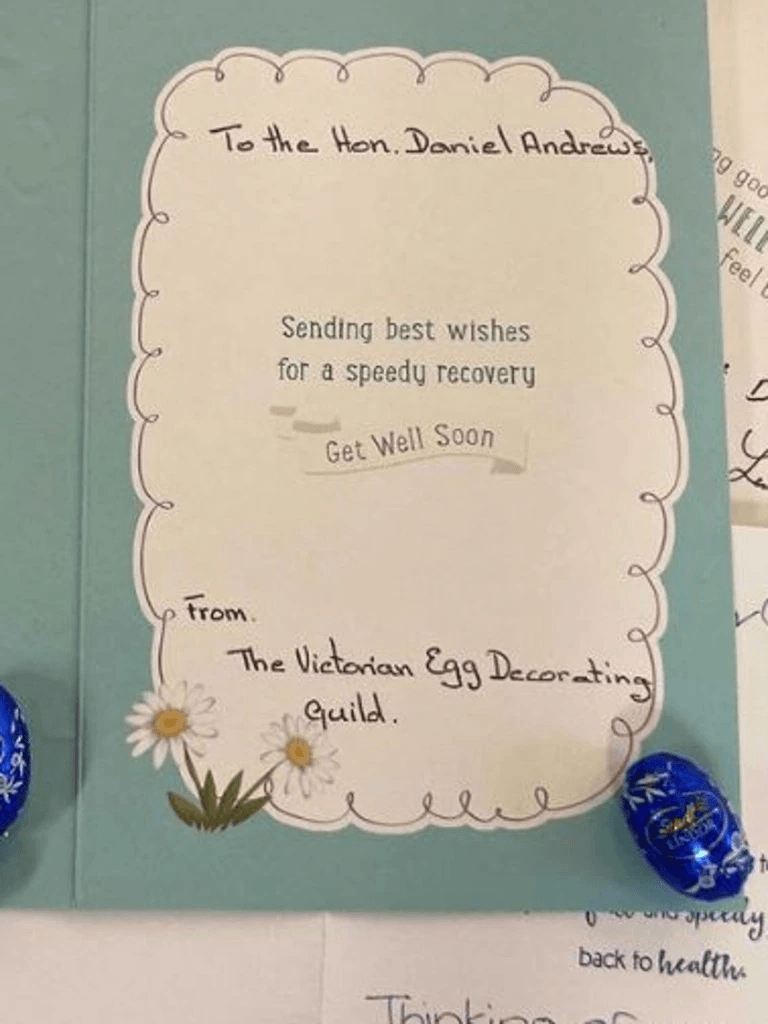 To the Hon. Daniel Andrews,
Sending best wishes
for a speedy recovery
Get Well Soon
From.
The Victorian Egg Decorating
Guild.
Lindt
LINDOR
WELL
feel
and speedy
back to health.
Thinking of